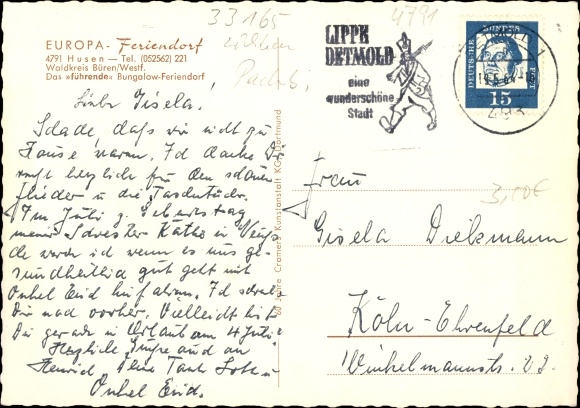 33165
4791
EUROPA-Feriendorf
4791 Husen — Tel. (052562) 221
Waldkreis Büren/Westf.
Das »führende« Bungalow-Feriendorf
LIPPE
DETMOLD
eine
wunderschöne
Stadt
DEUTSCHE BUNDESPOST
15
Liebe Gisela!
Schade, daß wir nicht zu
Hause waren. Ich danke Dir
recht herzlich für den schönen
Flieder u die Taschentücher.
Im Juli z. Geburtstag
meiner Schwester Käthe in
werde ich wenn es uns ge-
sundheitlich gut geht mit
Onkel Erid hinfahren. Ich schreibe
Dir nach vorher. Vielleicht bist
Du gerade in Urlaub am 4 Juli?
Herzliche Grüße auch an
Heinrich Deine Tante
Onkel Erid.
60 Jahre Cramers Kunstanstalt KG, Dortmund
3,00€
Frau
Gisela Diekmann
Köln-Ehrenfeld
Winkelmannstr.